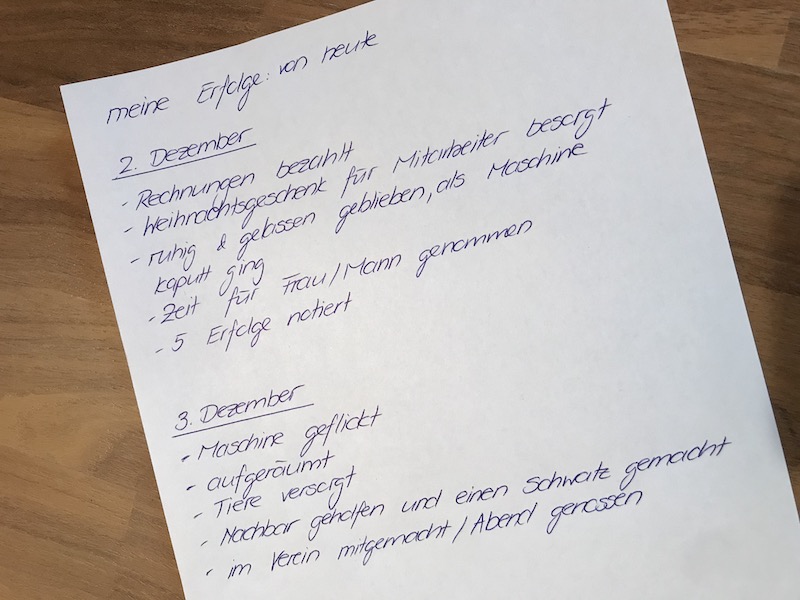 meine Erfolge: von heute
2. Dezember
- Rechnungen bezahlt
- Weihnachtsgeschenk für Mitarbeiter besorgt
- ruhig & gelassen geblieben, als Maschine
kaputt ging
- Zeit für Frau/Mann genommen
- 5 Erfolge notiert
3. Dezember
- Maschine geflickt
- aufgeräumt
- Tiere versorgt
- Nachbar geholfen und einen Schwatz gemacht
- im Verein mitgemacht/Abend genossen